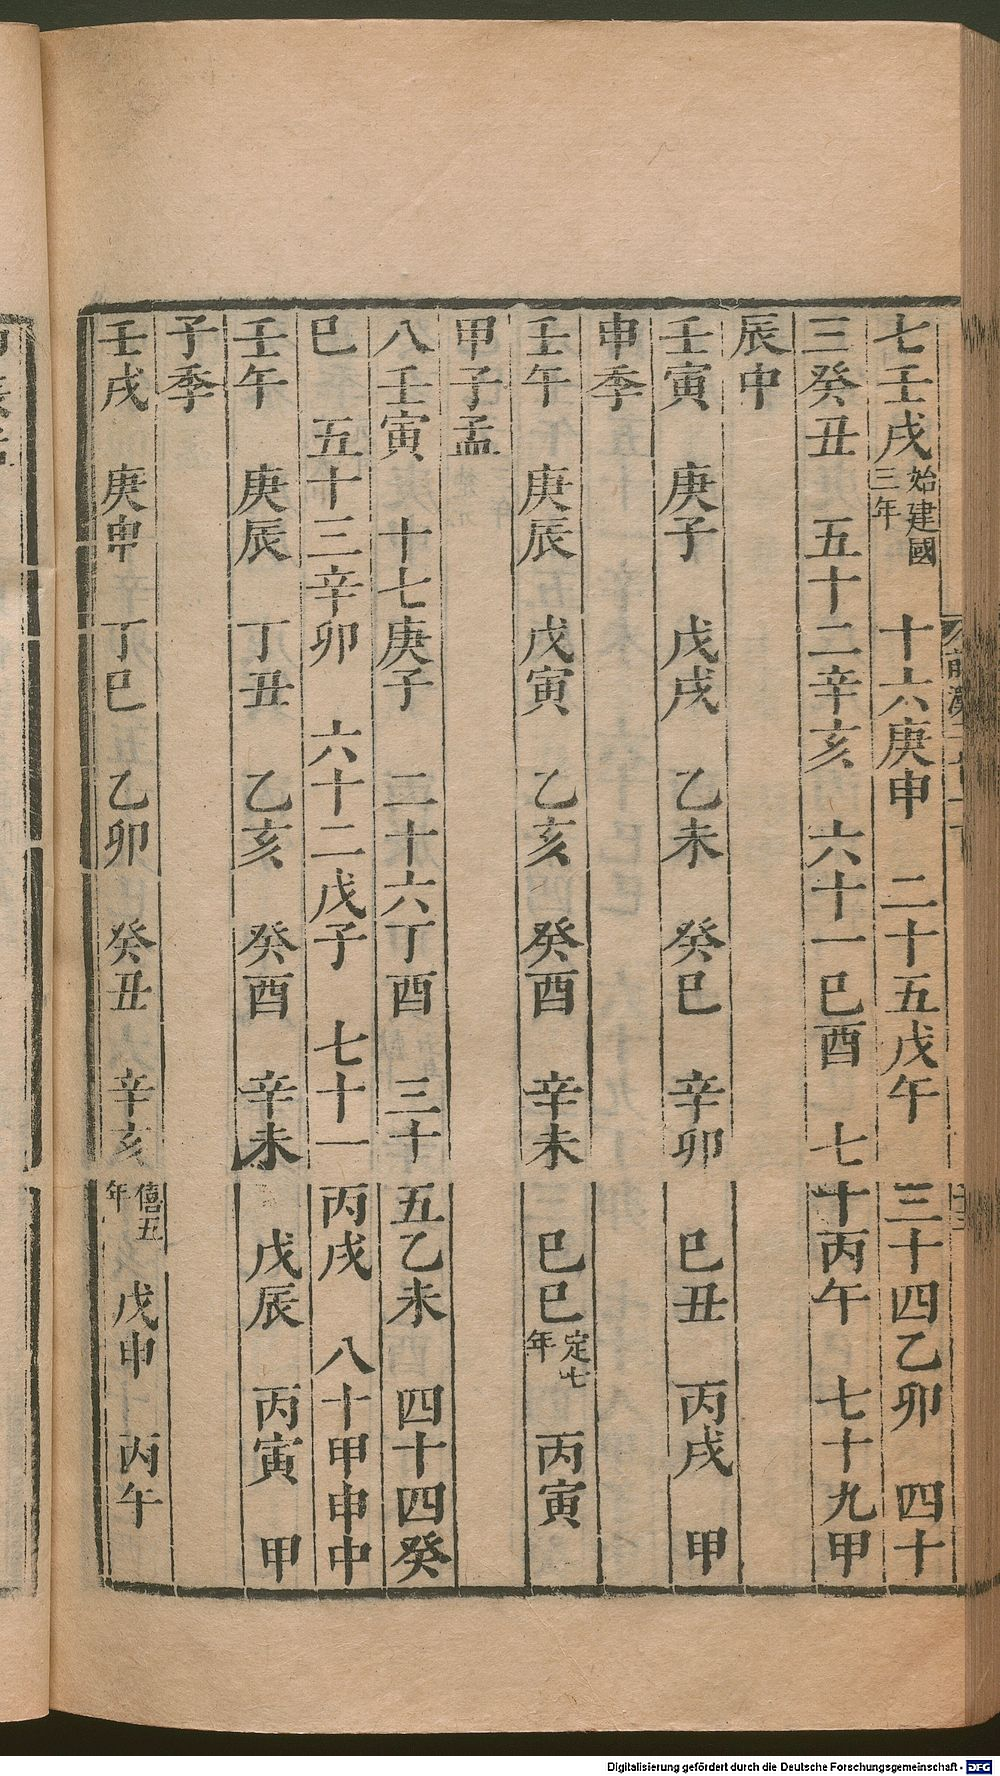 七壬戌始建國三年 十六庚申 二十五戊午 三十四乙卯 四十
三癸丑 五十二辛亥 六十一巳酉 七十丙午 七十九甲
辰中
壬寅 庚子 戊戌 乙未 癸巳 辛卯 巳丑 丙戌 甲
申季
壬午 庚辰 戊寅 乙亥 癸酉 辛未 巳巳定七年 丙寅
甲子孟
八壬寅 十七庚子 二十六丁酉 三十五乙未 四十四癸
巳 五十三辛卯 六十二戊子 七十一丙戌 八十甲申中
壬午 庚辰 丁丑 乙亥 癸酉 辛未 戊辰 丙寅 甲
子季
壬戌 庚申 丁巳 乙卯 癸丑 辛亥僖五年 戊申 丙午
Digitalisierung gefördert durch die Deutsche Forschungsgemeinschaft - DFG